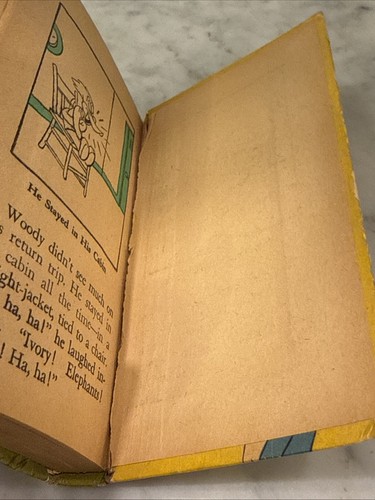 He Stayed in His Cabin
Woody didn't see much on
return trip. He stayed in
cabin all the time—in a
ght-jacket, tied to a chair.
ha, ha!" he laughed in-
"Ivory! Elephants!
! Ha, ha!"